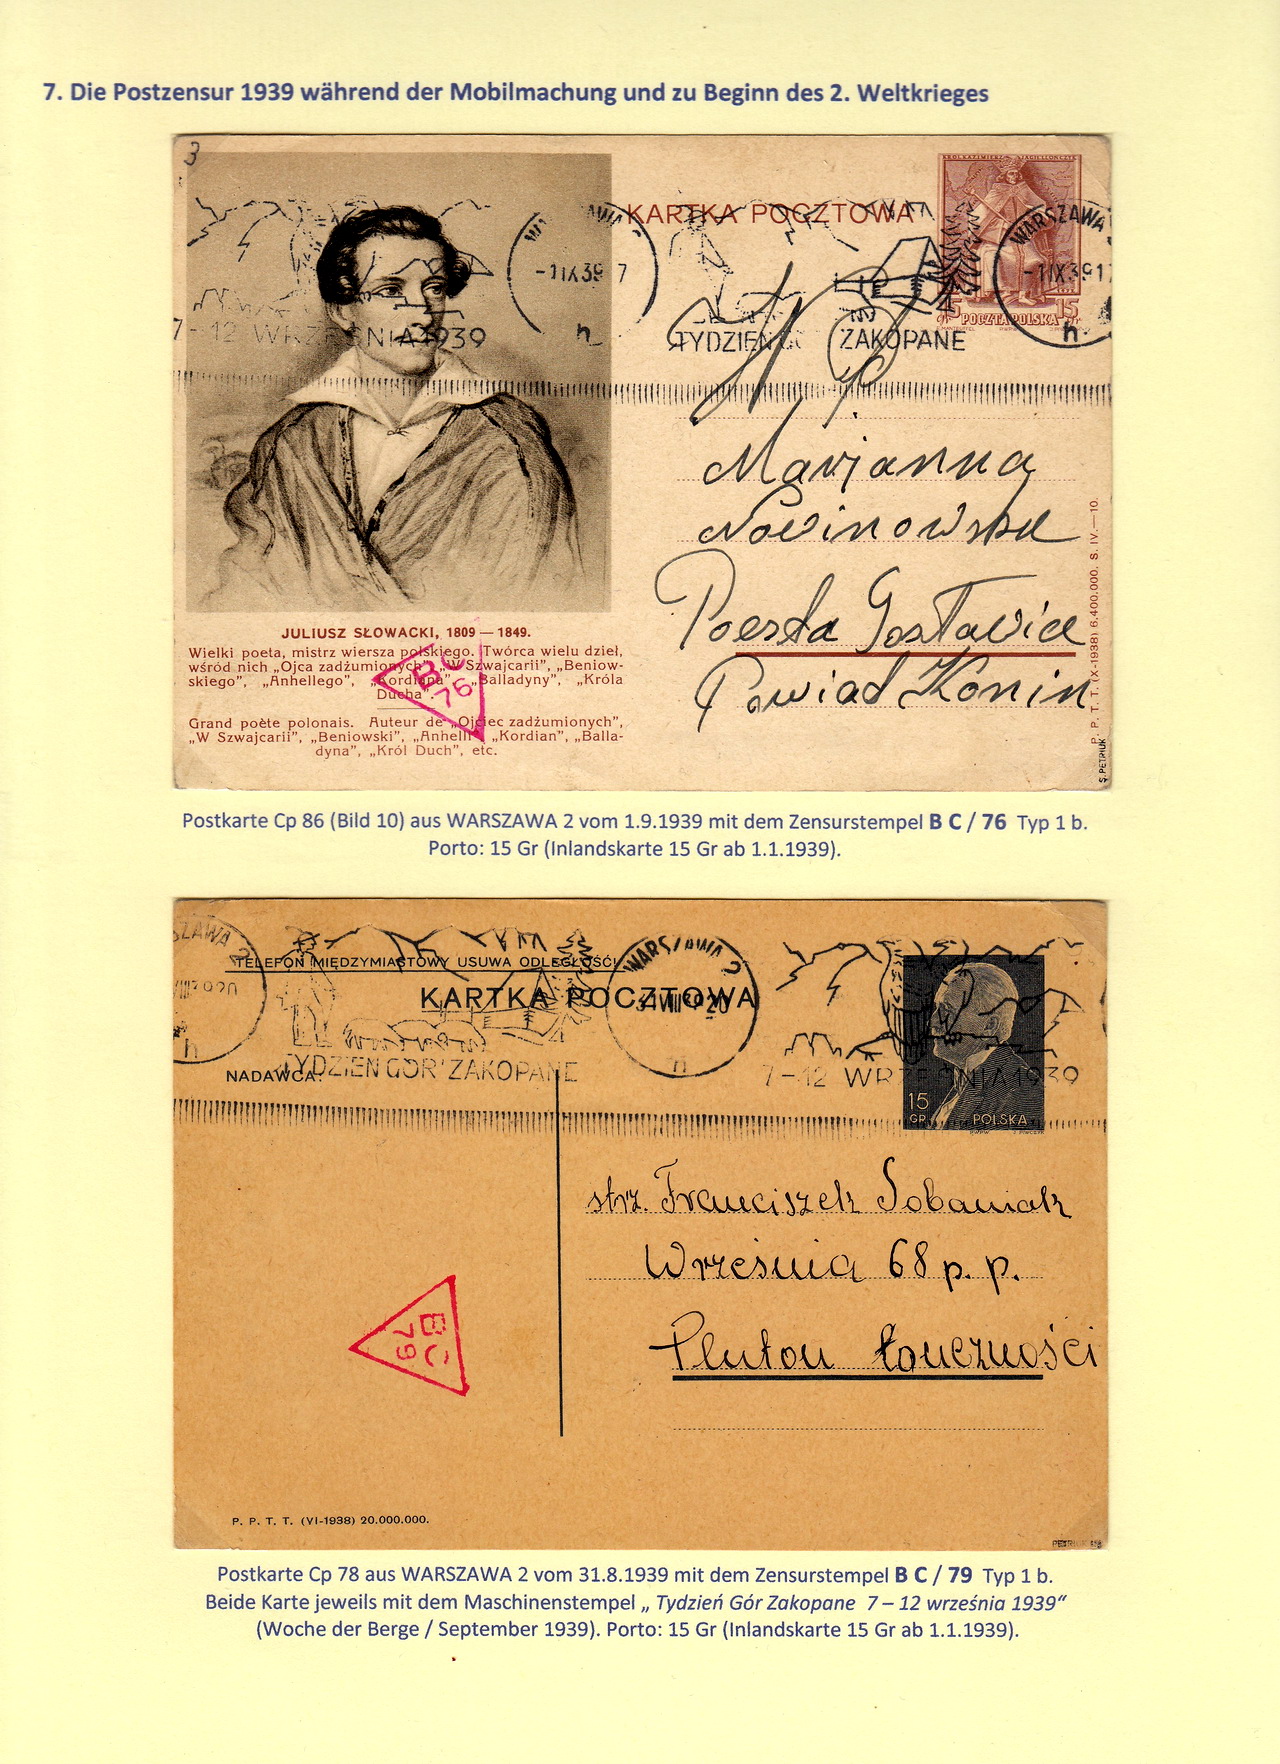 7. Die Postzensur 1939 während der Mobilmachung und zu Beginn des 2. Weltkrieges
3
KARTKA POCZTOWA
WARSZAWA
-1 IX 39 17
h
7-12 WRZEŚNIA 1939
TYDZIEŃ GÓR ZAKOPANE
15 POCZTA POLSKA 15
WARSZAWA
-1 IX 39 17
h
Marjanna
Nowinowska
Poczta Gosławice
Powiat Konin
JULIUSZ SŁOWACKI, 1809 — 1849.
Wielki poeta, mistrz wiersza polskiego. Twórca wielu dzieł,
wśród nich „Ojca zadżumionych”, „W Szwajcarii”, „Beniow-
skiego”, „Anhellego”, „Kordiana”, „Balladyny”, „Króla
Ducha”.
Grand poète polonais. Auteur de „Ojciec zadżumionych”,
„W Szwajcarii”, „Beniowski”, „Anhelli”, „Kordian”, „Balla-
dyna”, „Król Duch”, etc.
BC
76
P. P. T. T. (X-1938) 6.400.000. S. IV.—10.
S. PETRIUK
Postkarte Cp 86 (Bild 10) aus WARSZAWA 2 vom 1.9.1939 mit dem Zensurstempel B C / 76 Typ 1 b.
Porto: 15 Gr (Inlandskarte 15 Gr ab 1.1.1939).
TELEFON MIĘDZYMIASTOWY USUWA ODLEGŁOŚĆ!
KARTKA POCZTOWA
WARSZAWA 2
31 VIII 39 20
h
TYDZIEŃ GÓR ZAKOPANE
7-12 WRZEŚNIA 1939
NADAWCA:
15
GR
POLSKA
strz. Franciszek Sobaniak
Września 68 p. p.
Pluton Łączności
BC
79
P. P. T. T. (VI-1938) 20.000.000.
Postkarte Cp 78 aus WARSZAWA 2 vom 31.8.1939 mit dem Zensurstempel B C / 79 Typ 1 b.
Beide Karte jeweils mit dem Maschinenstempel „ Tydzień Gór Zakopane 7 – 12 września 1939“
(Woche der Berge / September 1939). Porto: 15 Gr (Inlandskarte 15 Gr ab 1.1.1939).